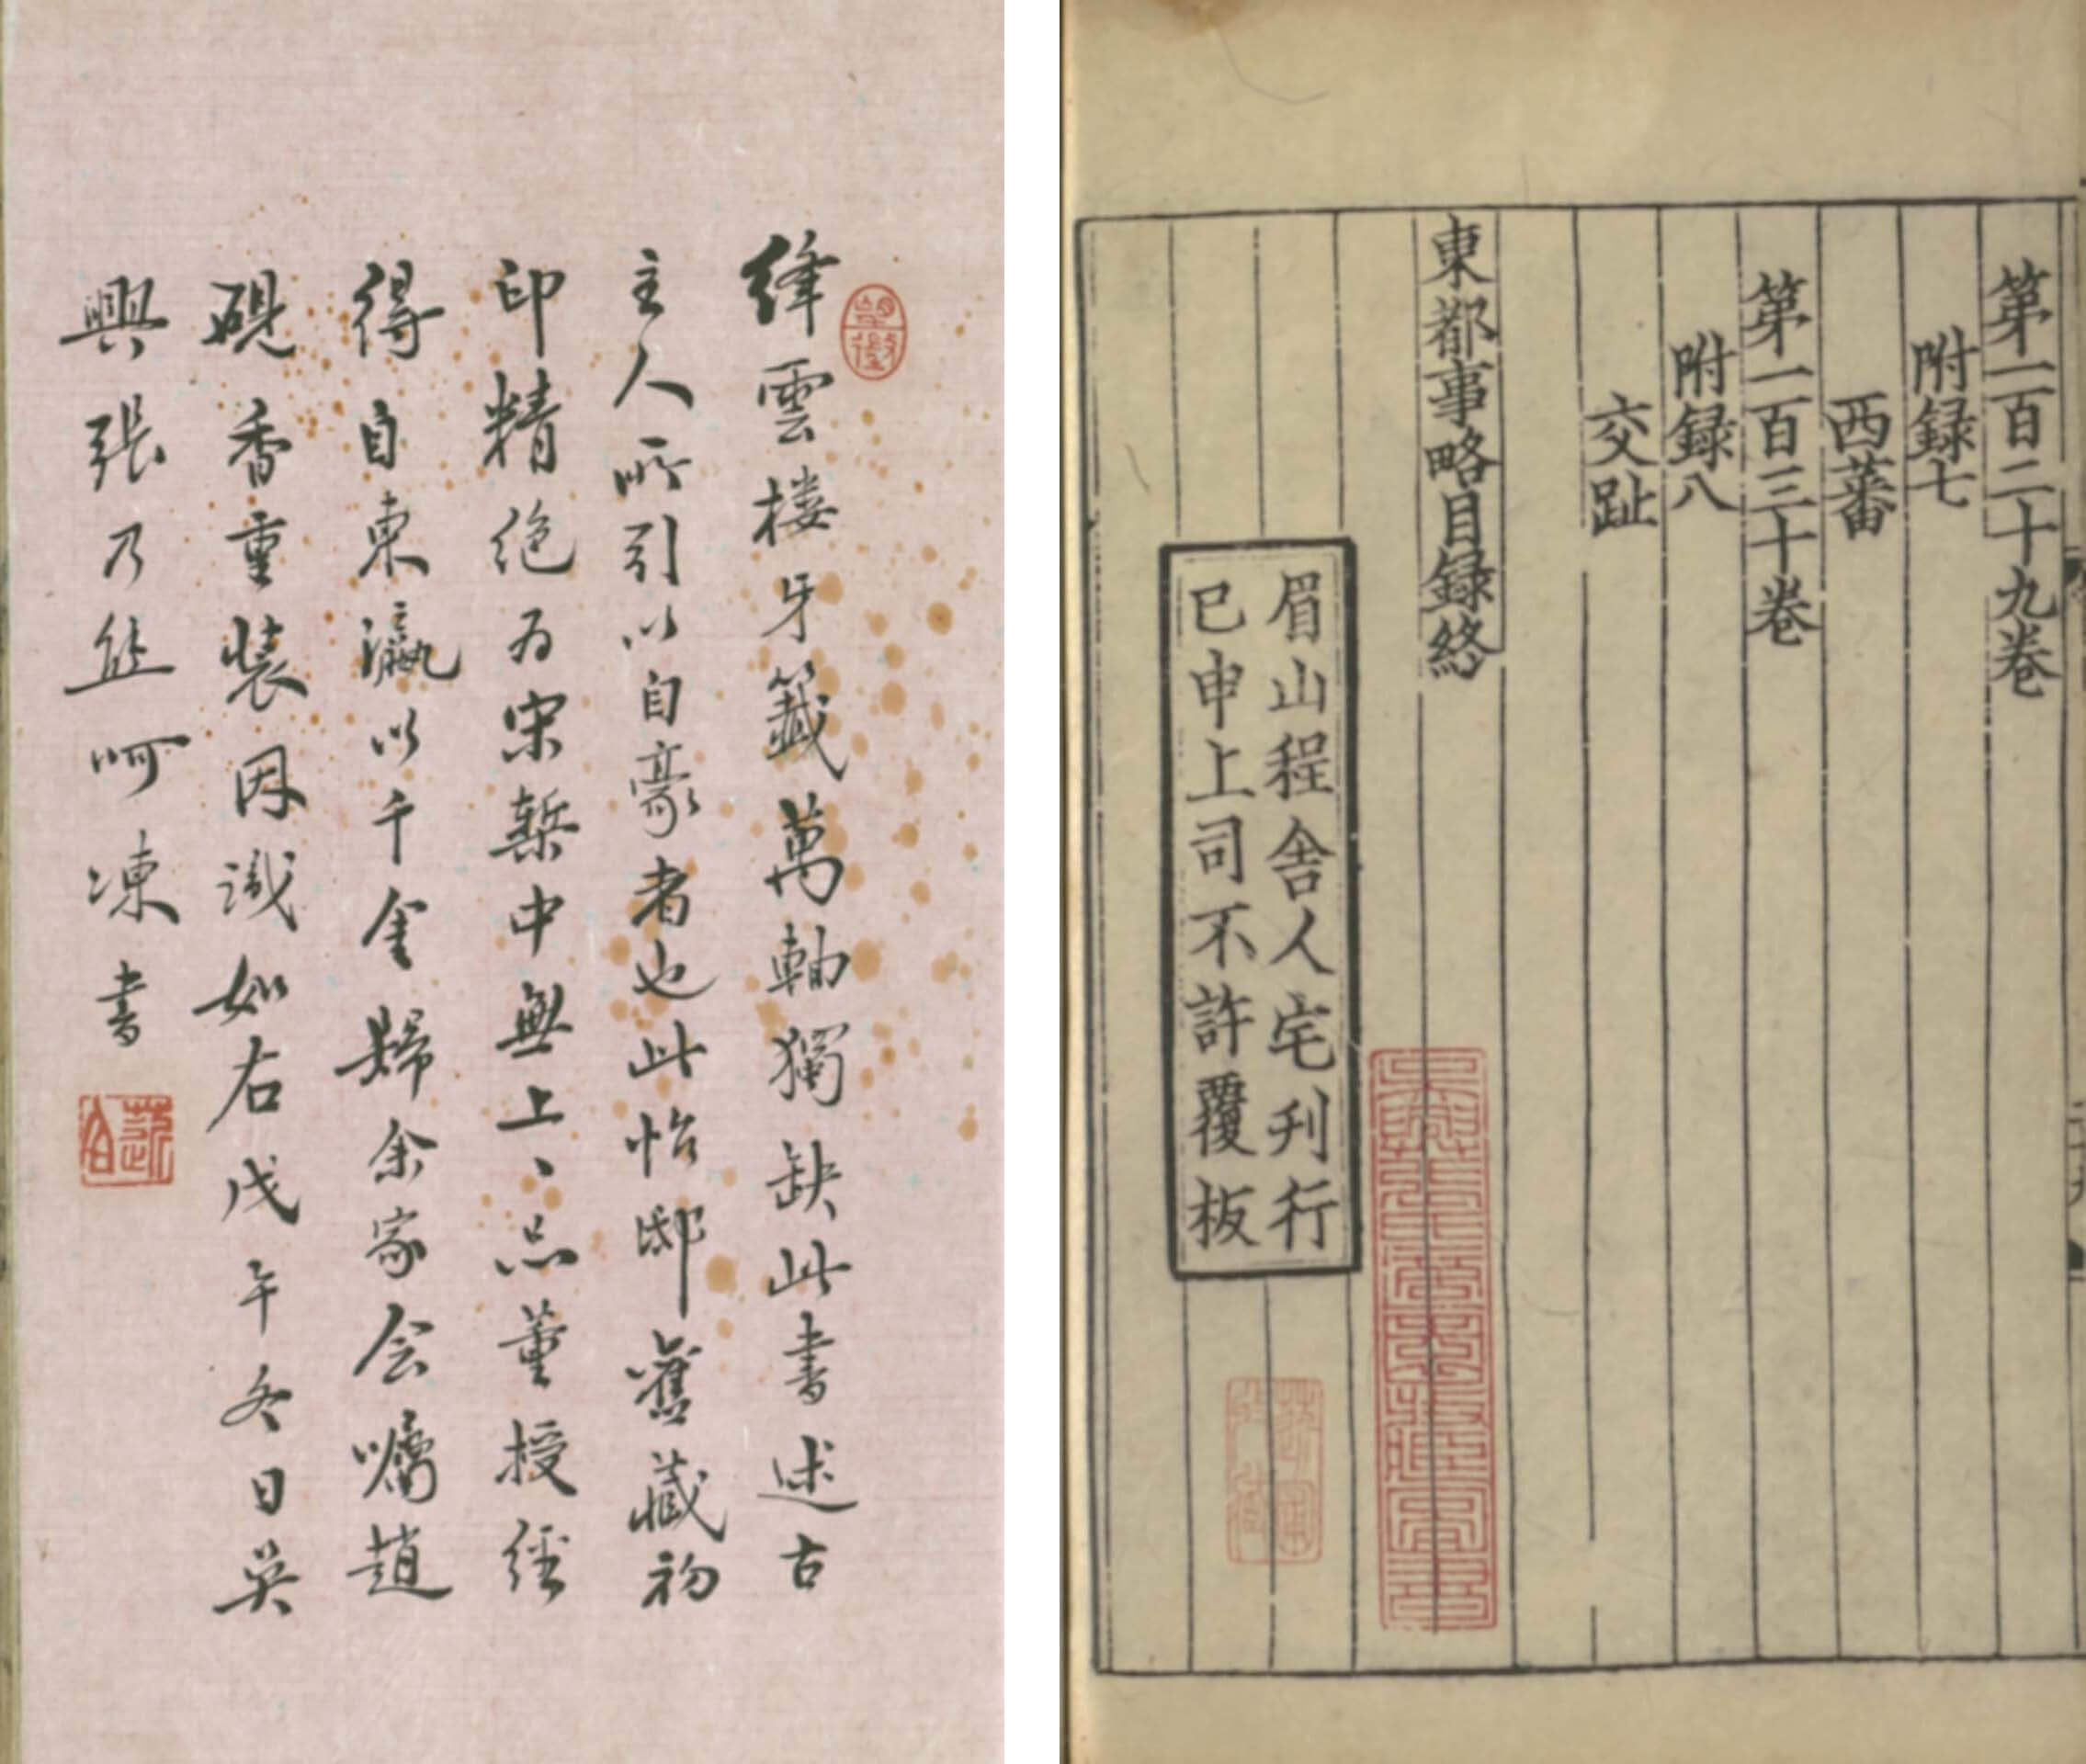 絳雲楼牙籤萬軸獨缺此書述古
主人所引以自豪者也此怡邸舊藏初
印精絶为宋槧中無上、品董授經
得自東瀛以千金歸余家会囑趙
硯香重装因識如右戊午冬日吴
興張乃熊呵凍書
第一百二十九卷
附録七
西蕃
第一百三十卷
附録八
交趾
東都事略目録終
眉山程舎人宅刋行
已申上司不許覆板